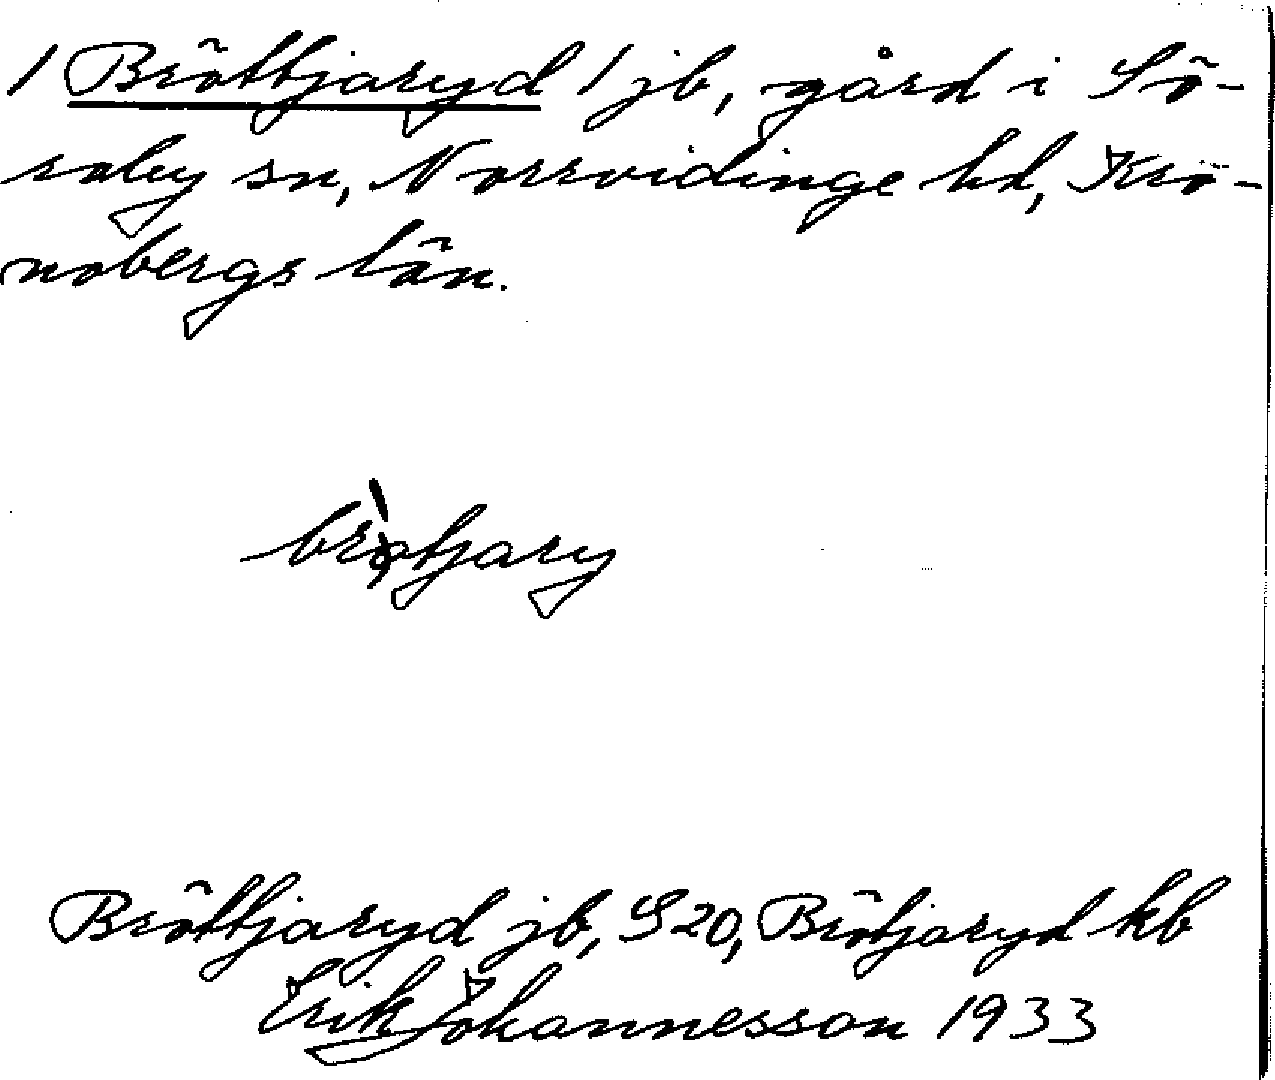 / Bröttjaryd / jb, gård i Sö-
raby sn, Norrvidinge hd, Kro-
nobergs län.
brötjary
Bröttjaryd jb, S20, Brötjaryd kb
Erik Johannesson 1933